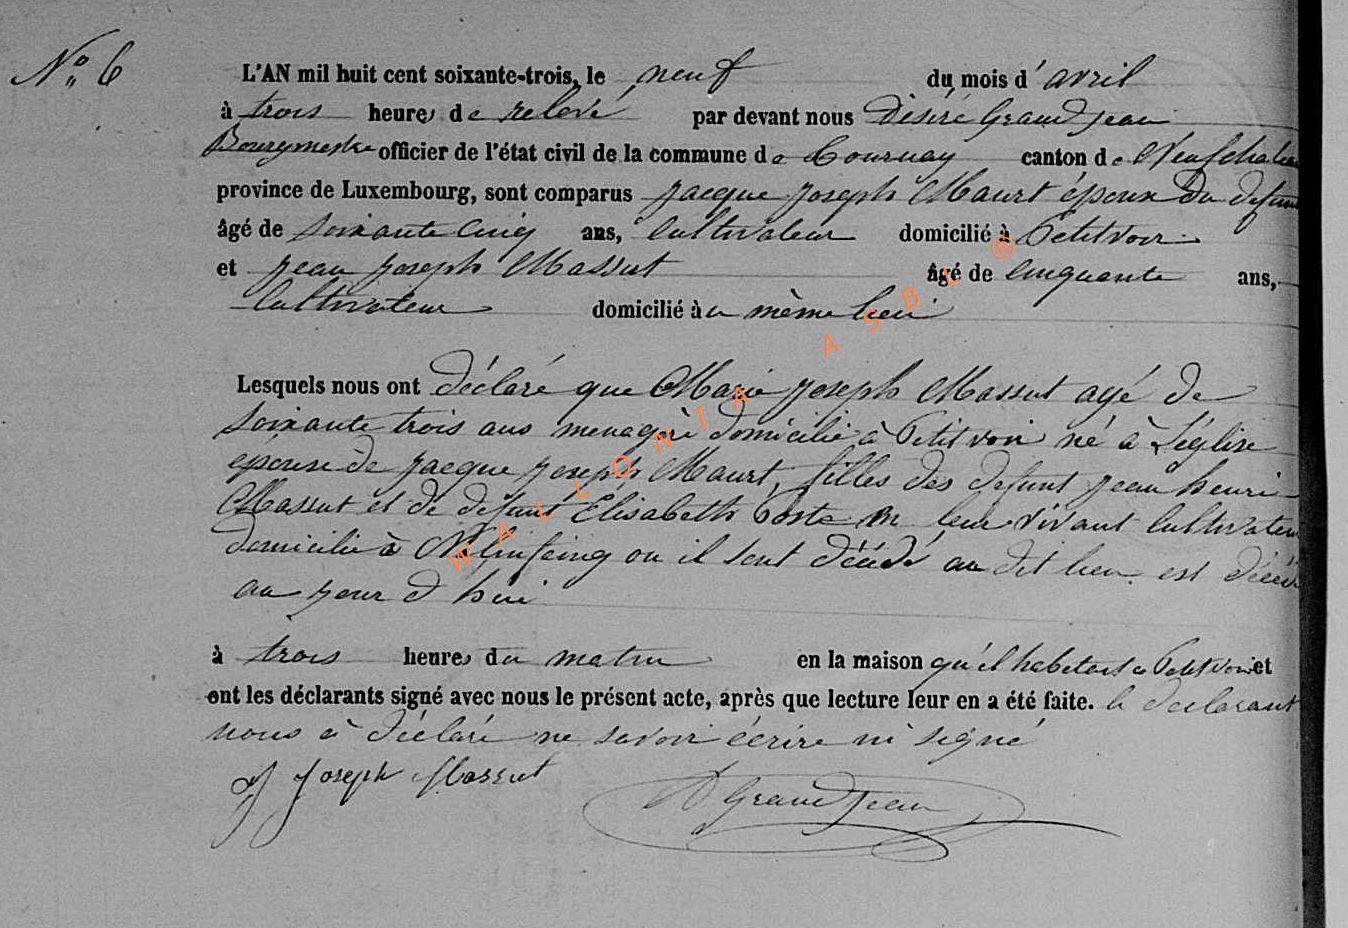 N° 6
L'AN mil huit cent soixante-trois, le neuf du mois d' avril
à trois heures de relevé par devant nous Désiré Grandjean
Bourgmestre officier de l'état civil de la commune de Tournay canton de Neufchateau
province de Luxembourg, sont comparus Jacque Joseph Maurt époux du defunt
âgé de soixante cinq ans, Cultivateur domicilié à Petitvoir
et Jean Joseph Massut âgé de cinquante ans,
Cultivateur domicilié au même lieu
Lesquels nous ont déclaré que Marie Joseph Massut agé de
soixante trois ans menagère domicilié à Petitvoir né à Léglise
épouse de Jacque Joseph Maurt, filles des defunt Jean henri
Massut et de defunt Elisabeth Poste en leur vivant Cultivateur
domicilié à ou il sont décédé au dit lieu est décédé
au jour d hui
à trois heures du matin en la maison qu'il habitait à Petitvoir et
ont les déclarants signé avec nous le présent acte, après que lecture leur en a été faite. le declarant
nous à déclaré ne savoir écrire ni signé
J Joseph Massut D Grandjean
WALLONIA ASBL ®